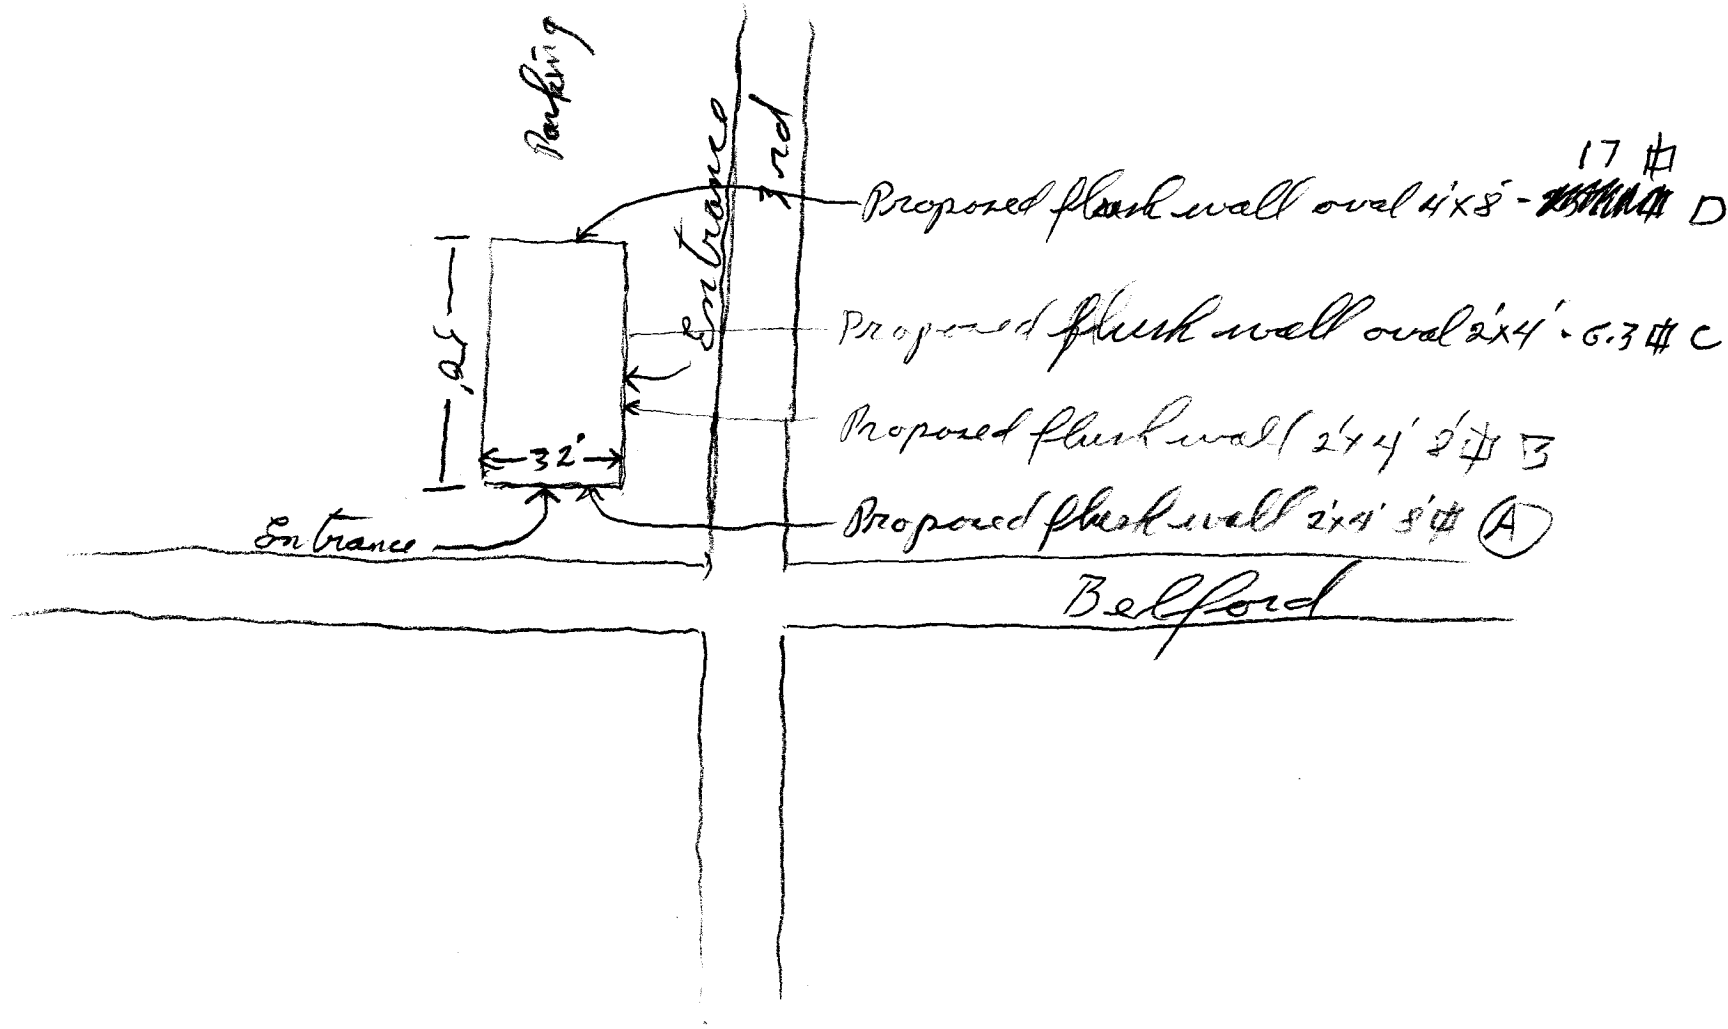 Parking
Entrance
3rd
17 ⌗
Proposed flush wall oval 4'x8' - D
Proposed flush wall oval 2'x4' - 6.3 ⌗ C
Proposed flush wall 2'x4' 8'⌗ B
32'
Proposed flush wall 2'x4' 8'⌗ A
Entrance
Belford